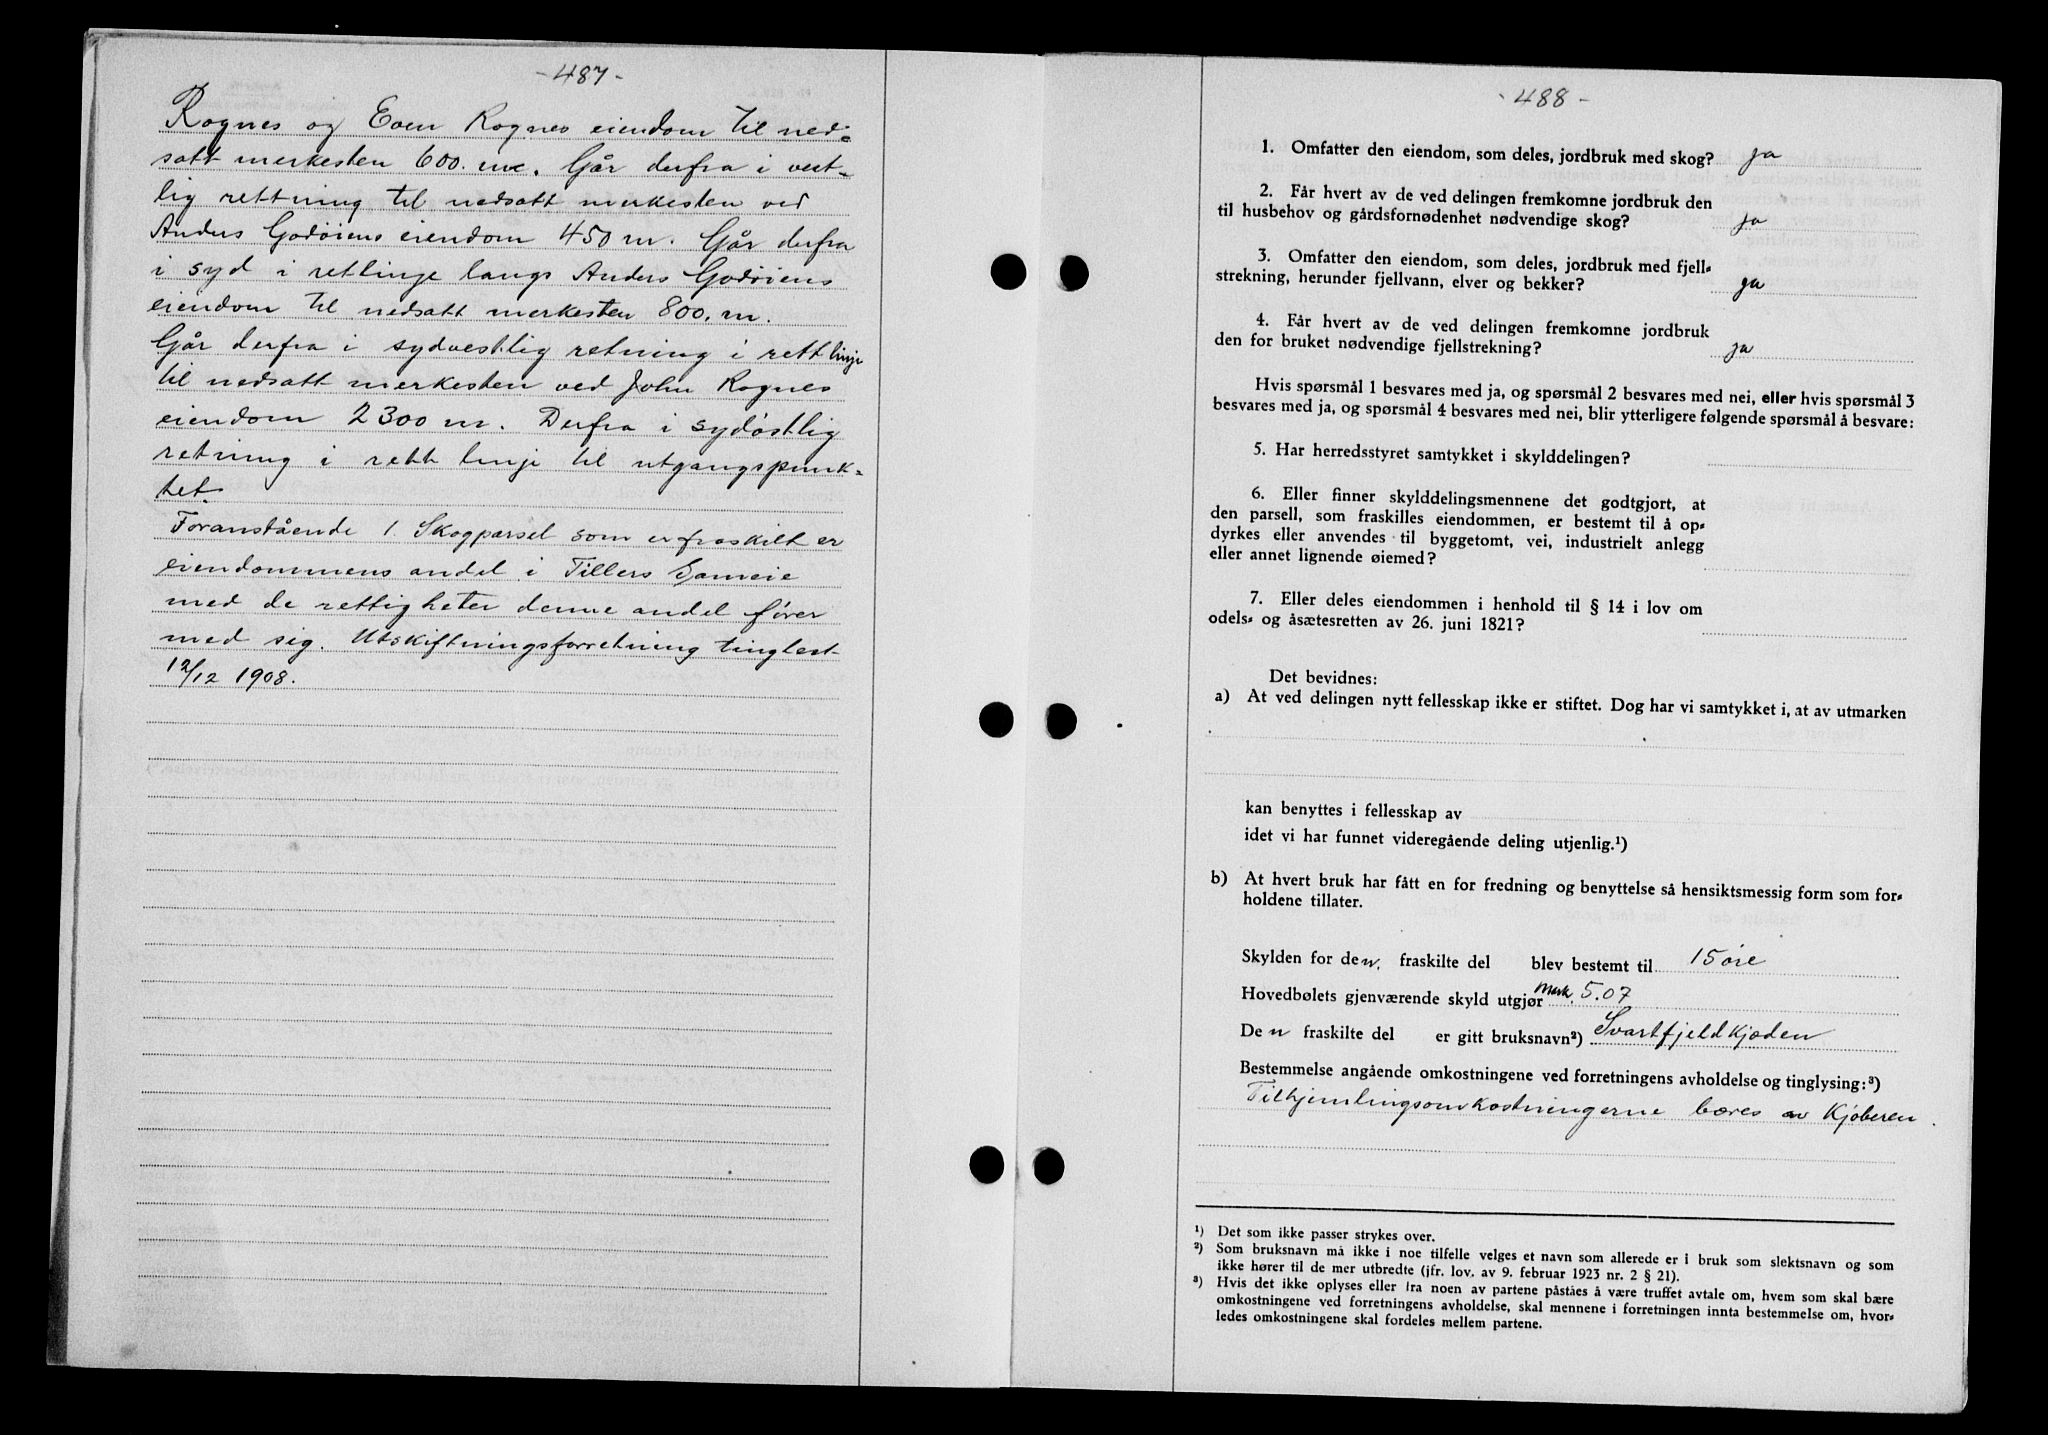 - 487 -
Rognes og Even Rognes eiendom til ned-
satt merkesten 600. m. Går derfra i vest-
lig rettning til nedsatt merkesten ved
Anders Godøiens eiendom 450 m. Går derfra
i syd i retlinje langs Anders Godøiens
eiendom til nedsatt merkesten 800. m.
Går derfra i sydvestlig retning i rett linje
til nedsatt merkesten ved John Rognes
eiendom 2300 m. Derfra i sydøstlig
retning i rett linje til utgangspunk-
tet.
Foranstående 1. Skogparsel som er fraskilt er
eiendommens andel i Tillers Sameie
med de rettigheter denne andel fører
med sig. Utskiftningsforretning tinglest
12/12 1908.
- 488 -
1. Omfatter den eiendom, som deles, jordbruk med skog? ja
2. Får hvert av de ved delingen fremkomne jordbruk den
til husbehov og gårdsfornødenhet nødvendige skog? ja
3. Omfatter den eiendom, som deles, jordbruk med fjell-
strekning, herunder fjellvann, elver og bekker? ja
4. Får hvert av de ved delingen fremkomne jordbruk
den for bruket nødvendige fjellstrekning? ja
Hvis spørsmål 1 besvares med ja, og spørsmål 2 besvares med nei, eller hvis spørsmål 3
besvares med ja, og spørsmål 4 besvares med nei, blir ytterligere følgende spørsmål å besvare:
5. Har herredsstyret samtykket i skylddelingen?
6. Eller finner skylddelingsmennene det godtgjort, at
den parsell, som fraskilles eiendommen, er bestemt til å op-
dyrkes eller anvendes til byggetomt, vei, industrielt anlegg
eller annet lignende øiemed?
7. Eller deles eiendommen i henhold til § 14 i lov om
odels- og åsætesretten av 26. juni 1821?
Det bevidnes:
a) At ved delingen nytt fellesskap ikke er stiftet. Dog har vi samtykket i, at av utmarken
kan benyttes i fellesskap av
idet vi har funnet videregående deling utjenlig.¹)
b) At hvert bruk har fått en for fredning og benyttelse så hensiktsmessig form som for-
holdene tillater.
Skylden for den. fraskilte del blev bestemt til 15 øre
Hovedbølets gjenværende skyld utgjør Mark. 5.07
Den fraskilte del er gitt bruksnavn²) Svartfjeldkjøden
Bestemmelse angående omkostningene ved forretningens avholdelse og tinglysing:³)
Tilhjemlingsomkostningerne bæres av Kjøberen.
¹) Det som ikke passer strykes over.
²) Som bruksnavn må ikke i noe tilfelle velges et navn som allerede er i bruk som slektsnavn og som
ikke hører til de mer utbredte (jfr. lov. av 9. februar 1923 nr. 2 § 21).
³) Hvis det ikke oplyses eller fra noen av partene påståes å være truffet avtale om, hvem som skal bære
omkostningene ved forretningens avholdelse, skal mennene i forretningen innta bestemmelse om, hvor-
ledes omkostningene skal fordeles mellem partene.